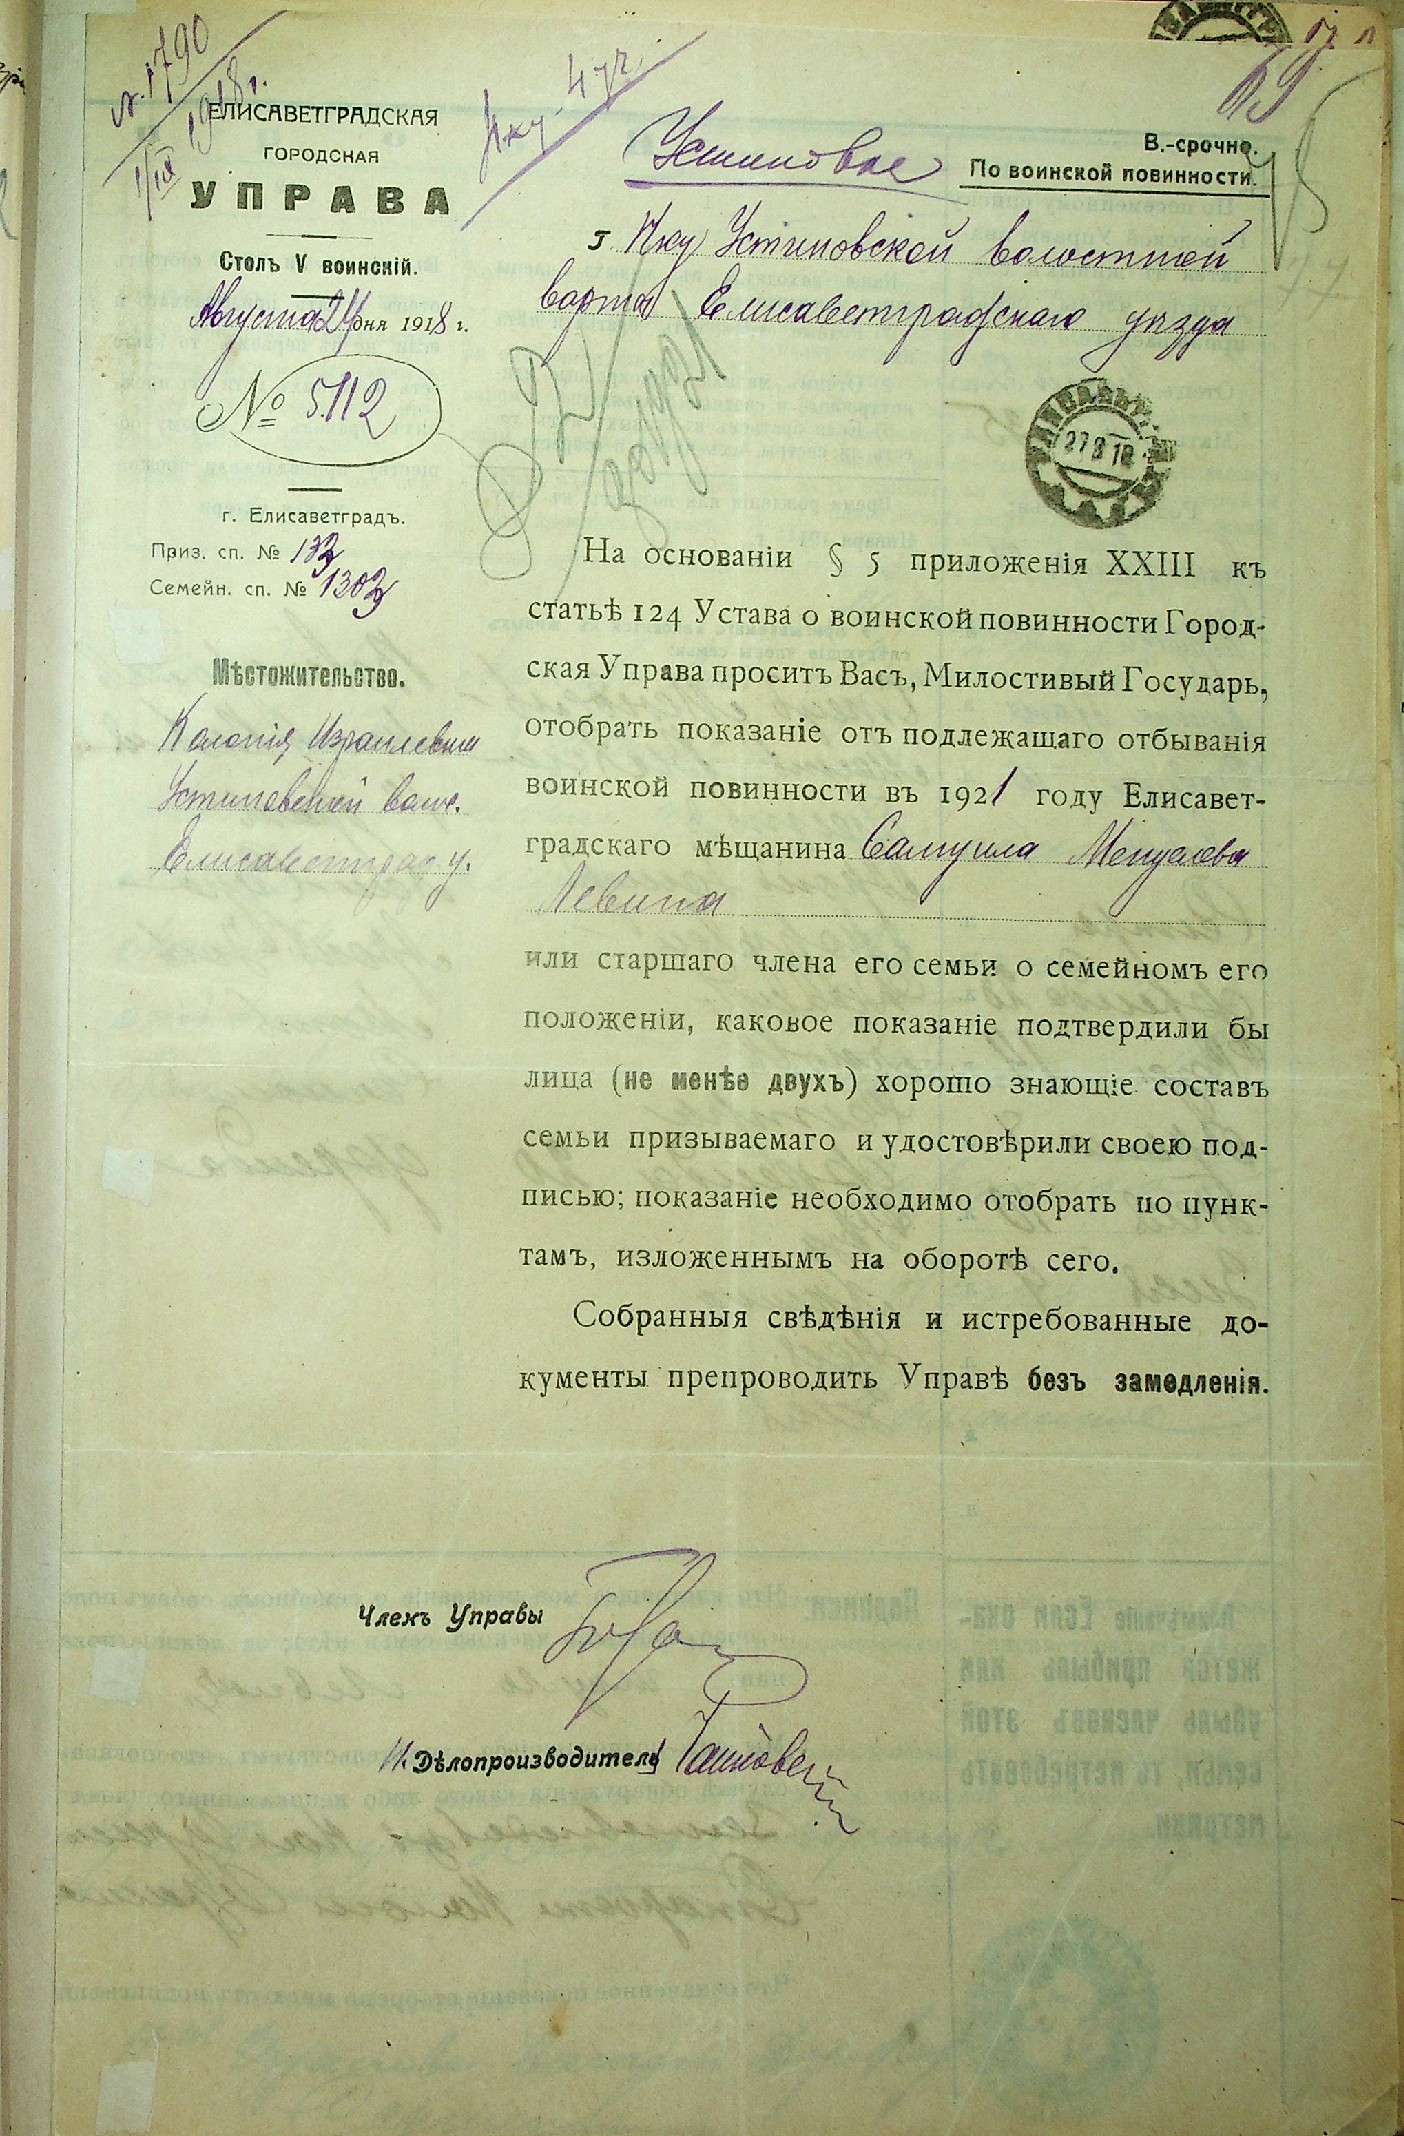 № 1790
1/IX 1918 г.
ЕЛИСАВЕТГРАДСКАЯ
ГОРОДСКАЯ
УПРАВА
Столъ V воинскій.
Августа 24 дня 1918 г.
№ 5112
г. Елисаветградъ.
Приз. сп. № 133
Семейн. сп. № 1303
Мѣстожительство.
Колонія Израилевка
Устиновской вол.
Елисаветград у.
Устиновое
В.-срочно.
По воинской повинности.
г. Нку Устиновской волостной
варты Елисаветградскаго уѣзда
27 8 18
На основаніи § 5 приложенія XXIII къ
статьѣ 124 Устава о воинской повинности Город-
ская Управа проситъ Васъ, Милостивый Государь,
отобрать показаніе отъ подлежащаго отбыванія
воинской повинности въ 1921 году Елисавет-
градскаго мѣщанина Самуила
Левина
или старшаго члена его семьи о семейномъ его
положеніи, каковое показаніе подтвердили бы
лица (не менѣе двухъ) хорошо знающіе составъ
семьи призываемаго и удостовѣрили своею под-
писью; показаніе необходимо отобрать по пунк-
тамъ, изложеннымъ на оборотѣ сего.
Собранныя свѣдѣнія и истребованные до-
кументы препроводить Управѣ безъ замедленія.
Членъ Управы
И. Дѣлопроизводителя